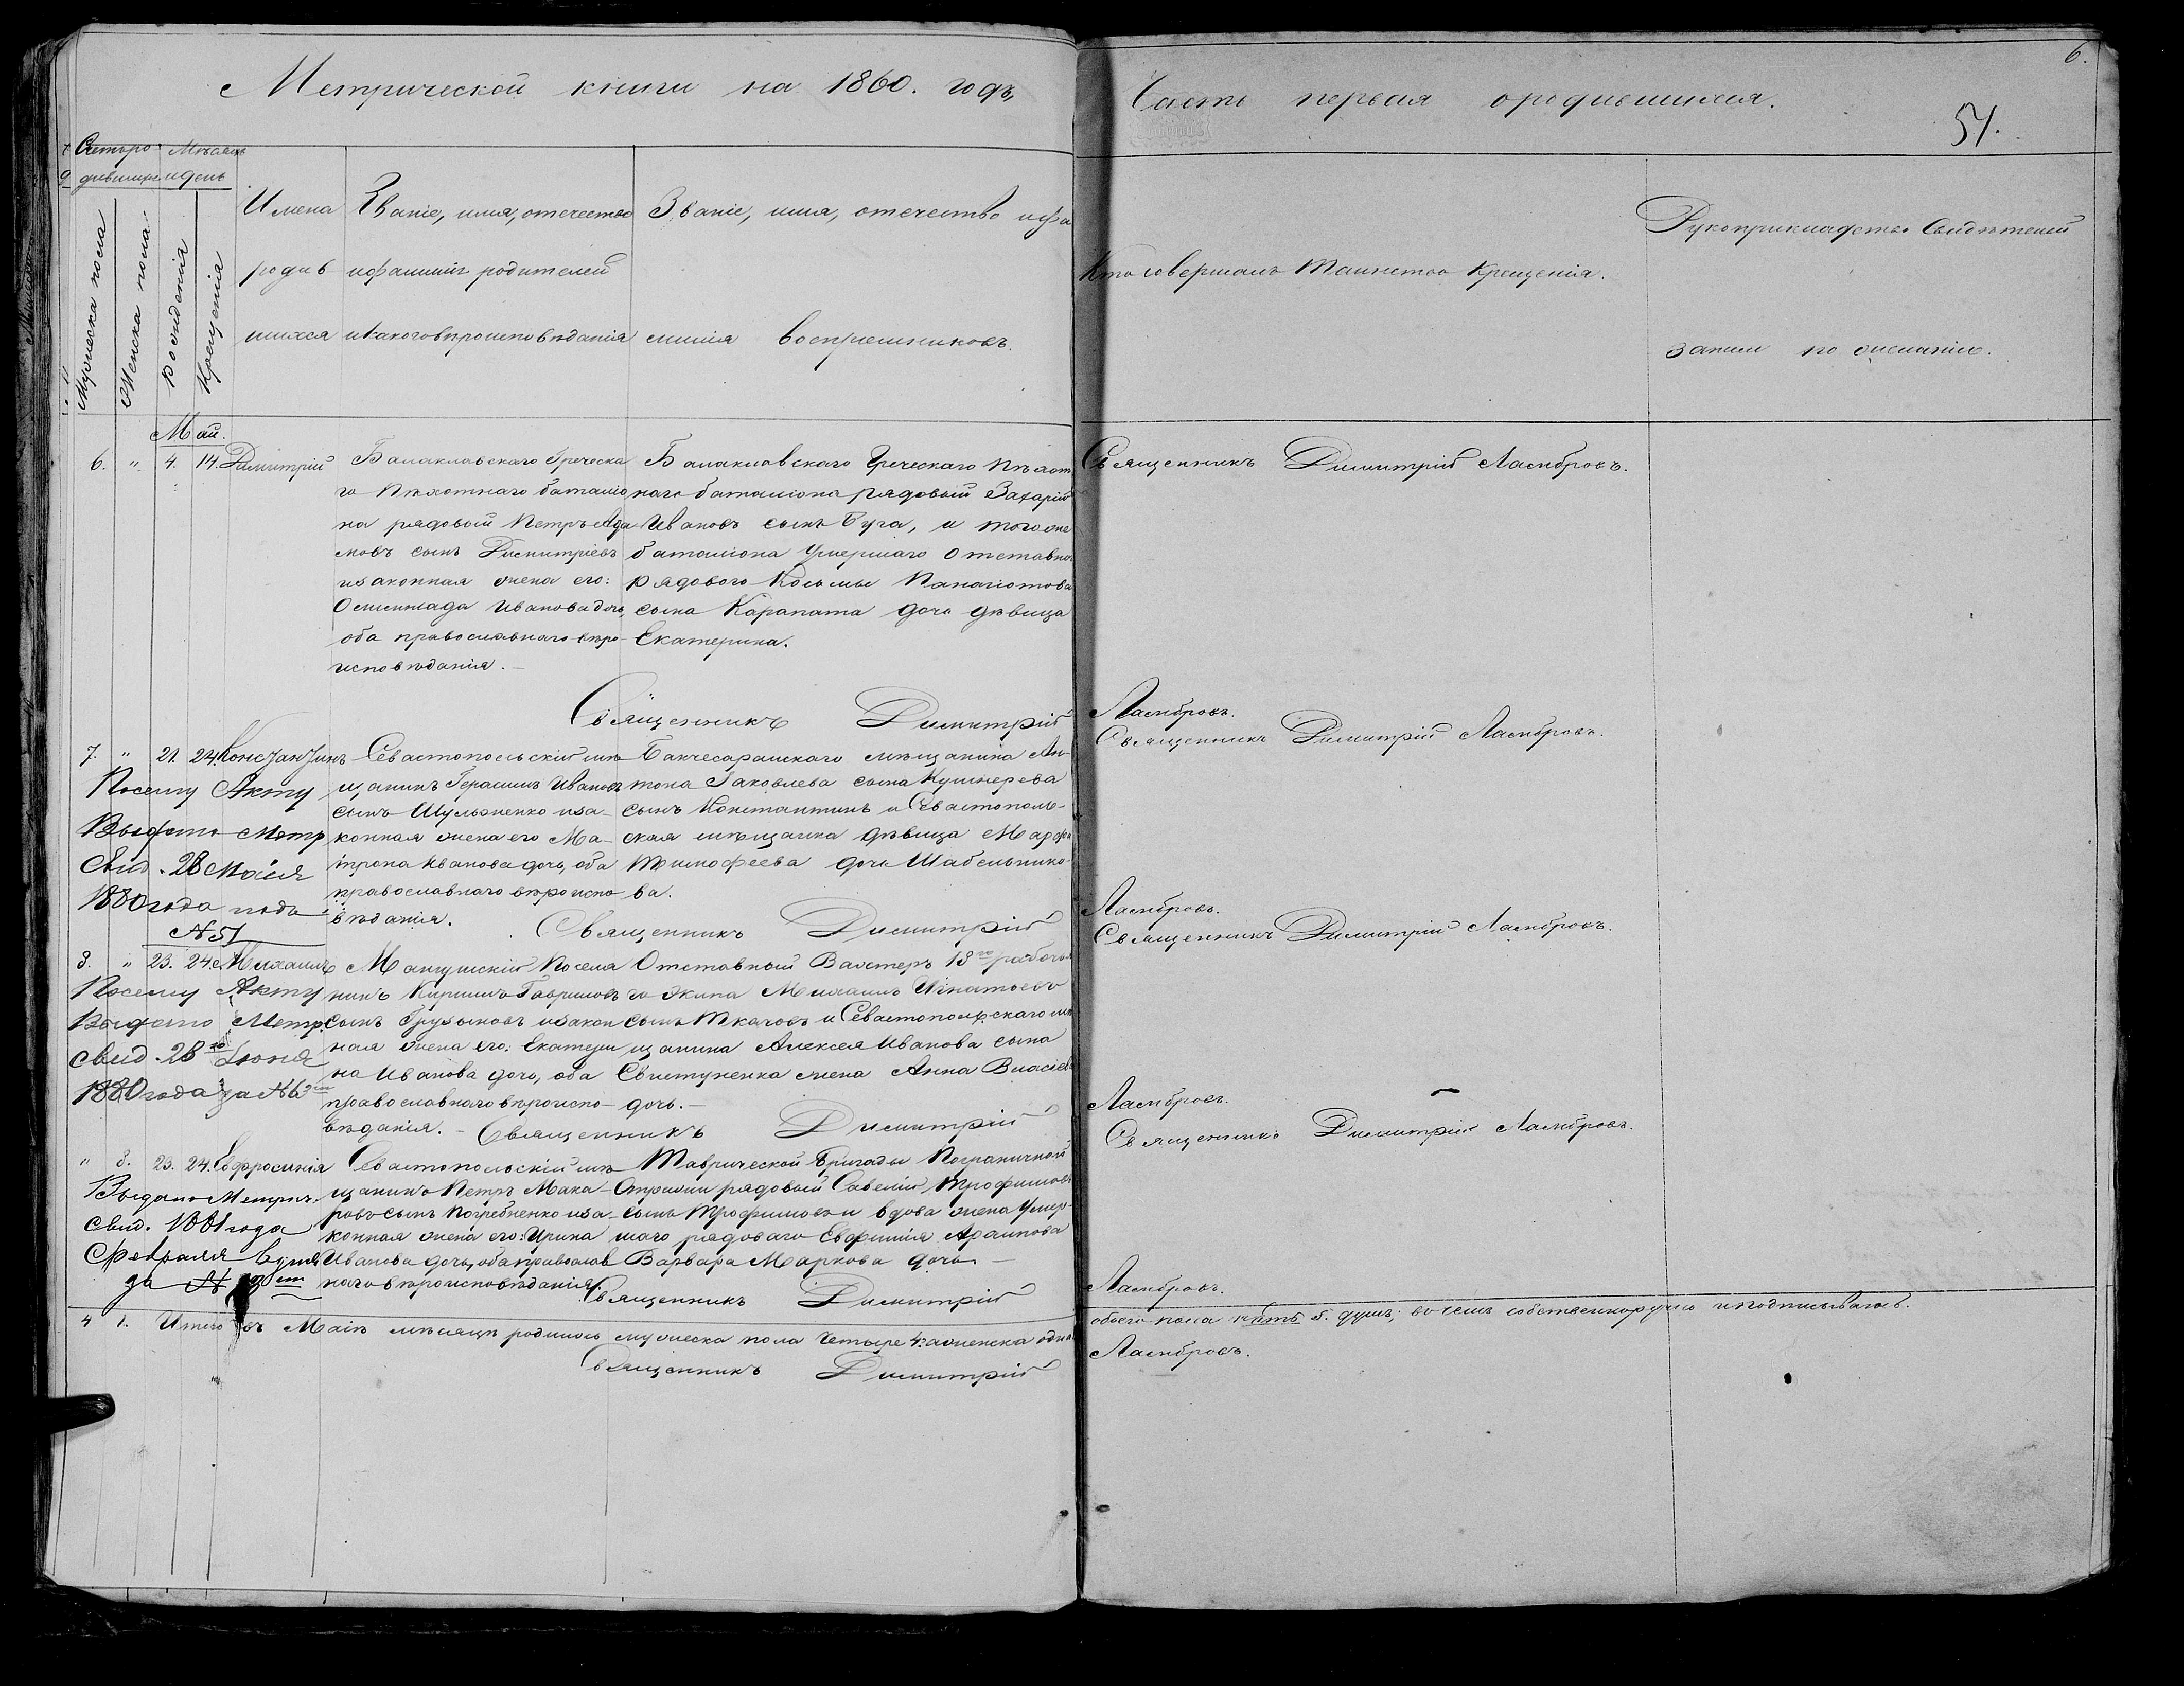 Метрической книги на 1860. годъ,
Часть первая о родившихся.
6.
51.
Счетъ ро-
дившихся
Мѣсяцъ
и день
Мужеска пола
Женска пола
Рожденія
Крещенія
Имена
родив
шихся
Званіе, имя, отечество
и фамилія родителей
и какого вѣроисповѣданія
Званіе, имя, отечество и фа
милія воспріемниковъ.
Кто совершалъ таинство крещенія.
Рукоприкладство свидѣтелей
записи по желанію.
Май.
6. " 4. 14. Димитрій
Балаклавскаго Греческа
го Пѣхотнаго баталіо
на рядовый Петръ Ада
мовъ сынъ Димитріевъ
и законная жена его:
Иванова дочь,
оба православнаго вѣро-
исповѣданія.
Балаклавскаго Греческаго Пѣхот
наго баталіона рядовый Захарій
Ивановъ сынъ Буга, и того же
баталіона умершаго отставно
рядового Косьмы Панагіотова
сына Карапата дочь дѣвица
Екатерина.
Священникъ Димитрій Ламбровъ.
Священникъ Димитрій Ламбровъ.
7. " 21. 24. Константинъ
По сему Акту
Выдано Метр
Свид. 28 Маія
1880 года подъ
№ 51
Севастопольскій мѣ
щанинъ Герасимъ Ивановъ
сынъ Шульженко и за-
конная жена его Ма-
трона Иванова дочь, оба
православнаго вѣроиспо
вѣданія.
Бакчесарайскаго мѣщанина Ан-
тона Іаковлева сына Кушнерева
сынъ Константинъ и Севастополь-
ская мѣщанка дѣвица Марфа
Тимофеева дочь Шабельнико-
ва.
Священникъ Димитрій Ламбровъ.
Священникъ Димитрій Ламбровъ.
8. " 23. 24. Михаилъ
По сему Акту
Выдано Метр.
свид. 28го Іюня
1880 года за №
Мангушскій поселя
нинъ Кириллъ Гавриловъ
сынъ и закон
ная жена его: Екатери
на Иванова дочь, оба
православнаго вѣроиспо-
вѣданія.
Отставный Вахтеръ 18го рабочь
го экипа Михаилъ Игнатьевъ
сынъ Ткачовъ и Севастопольскаго мѣ
щанина Алексея Иванова сына
Свистуненка жена Анна Власіева
дочь.
Священникъ Димитрій Ламбровъ.
Священникъ Димитрій Ламбровъ.
" 3. 23. 24. Евфросинія
Выдано Метрич.
Свид. 1881 года
Февраля
за №
Севастопольскій мѣ
щанинъ Петръ Мака-
ровъ сынъ Погребненко и за-
конная жена его: Ирина
Иванова дочь, оба православ
наго вѣроисповѣданія.
Таврической Бригады Пограничной
Стражи рядовый Савелій Трофимовъ
сынъ Трофимовъ и вдова жена умер-
шаго рядоваго Евфимія
Варвара Маркова дочь
Священникъ Димитрій Ламбровъ.
Священникъ Димитрій Ламбровъ.
4 1. Итого въ Маіѣ мѣсяцѣ родилось мужеска пола четыре 4. а женска одна
обоего пола пять 5. душъ; въ чемъ собственноручно и подписываюсь.
Священникъ Димитрій Ламбровъ.